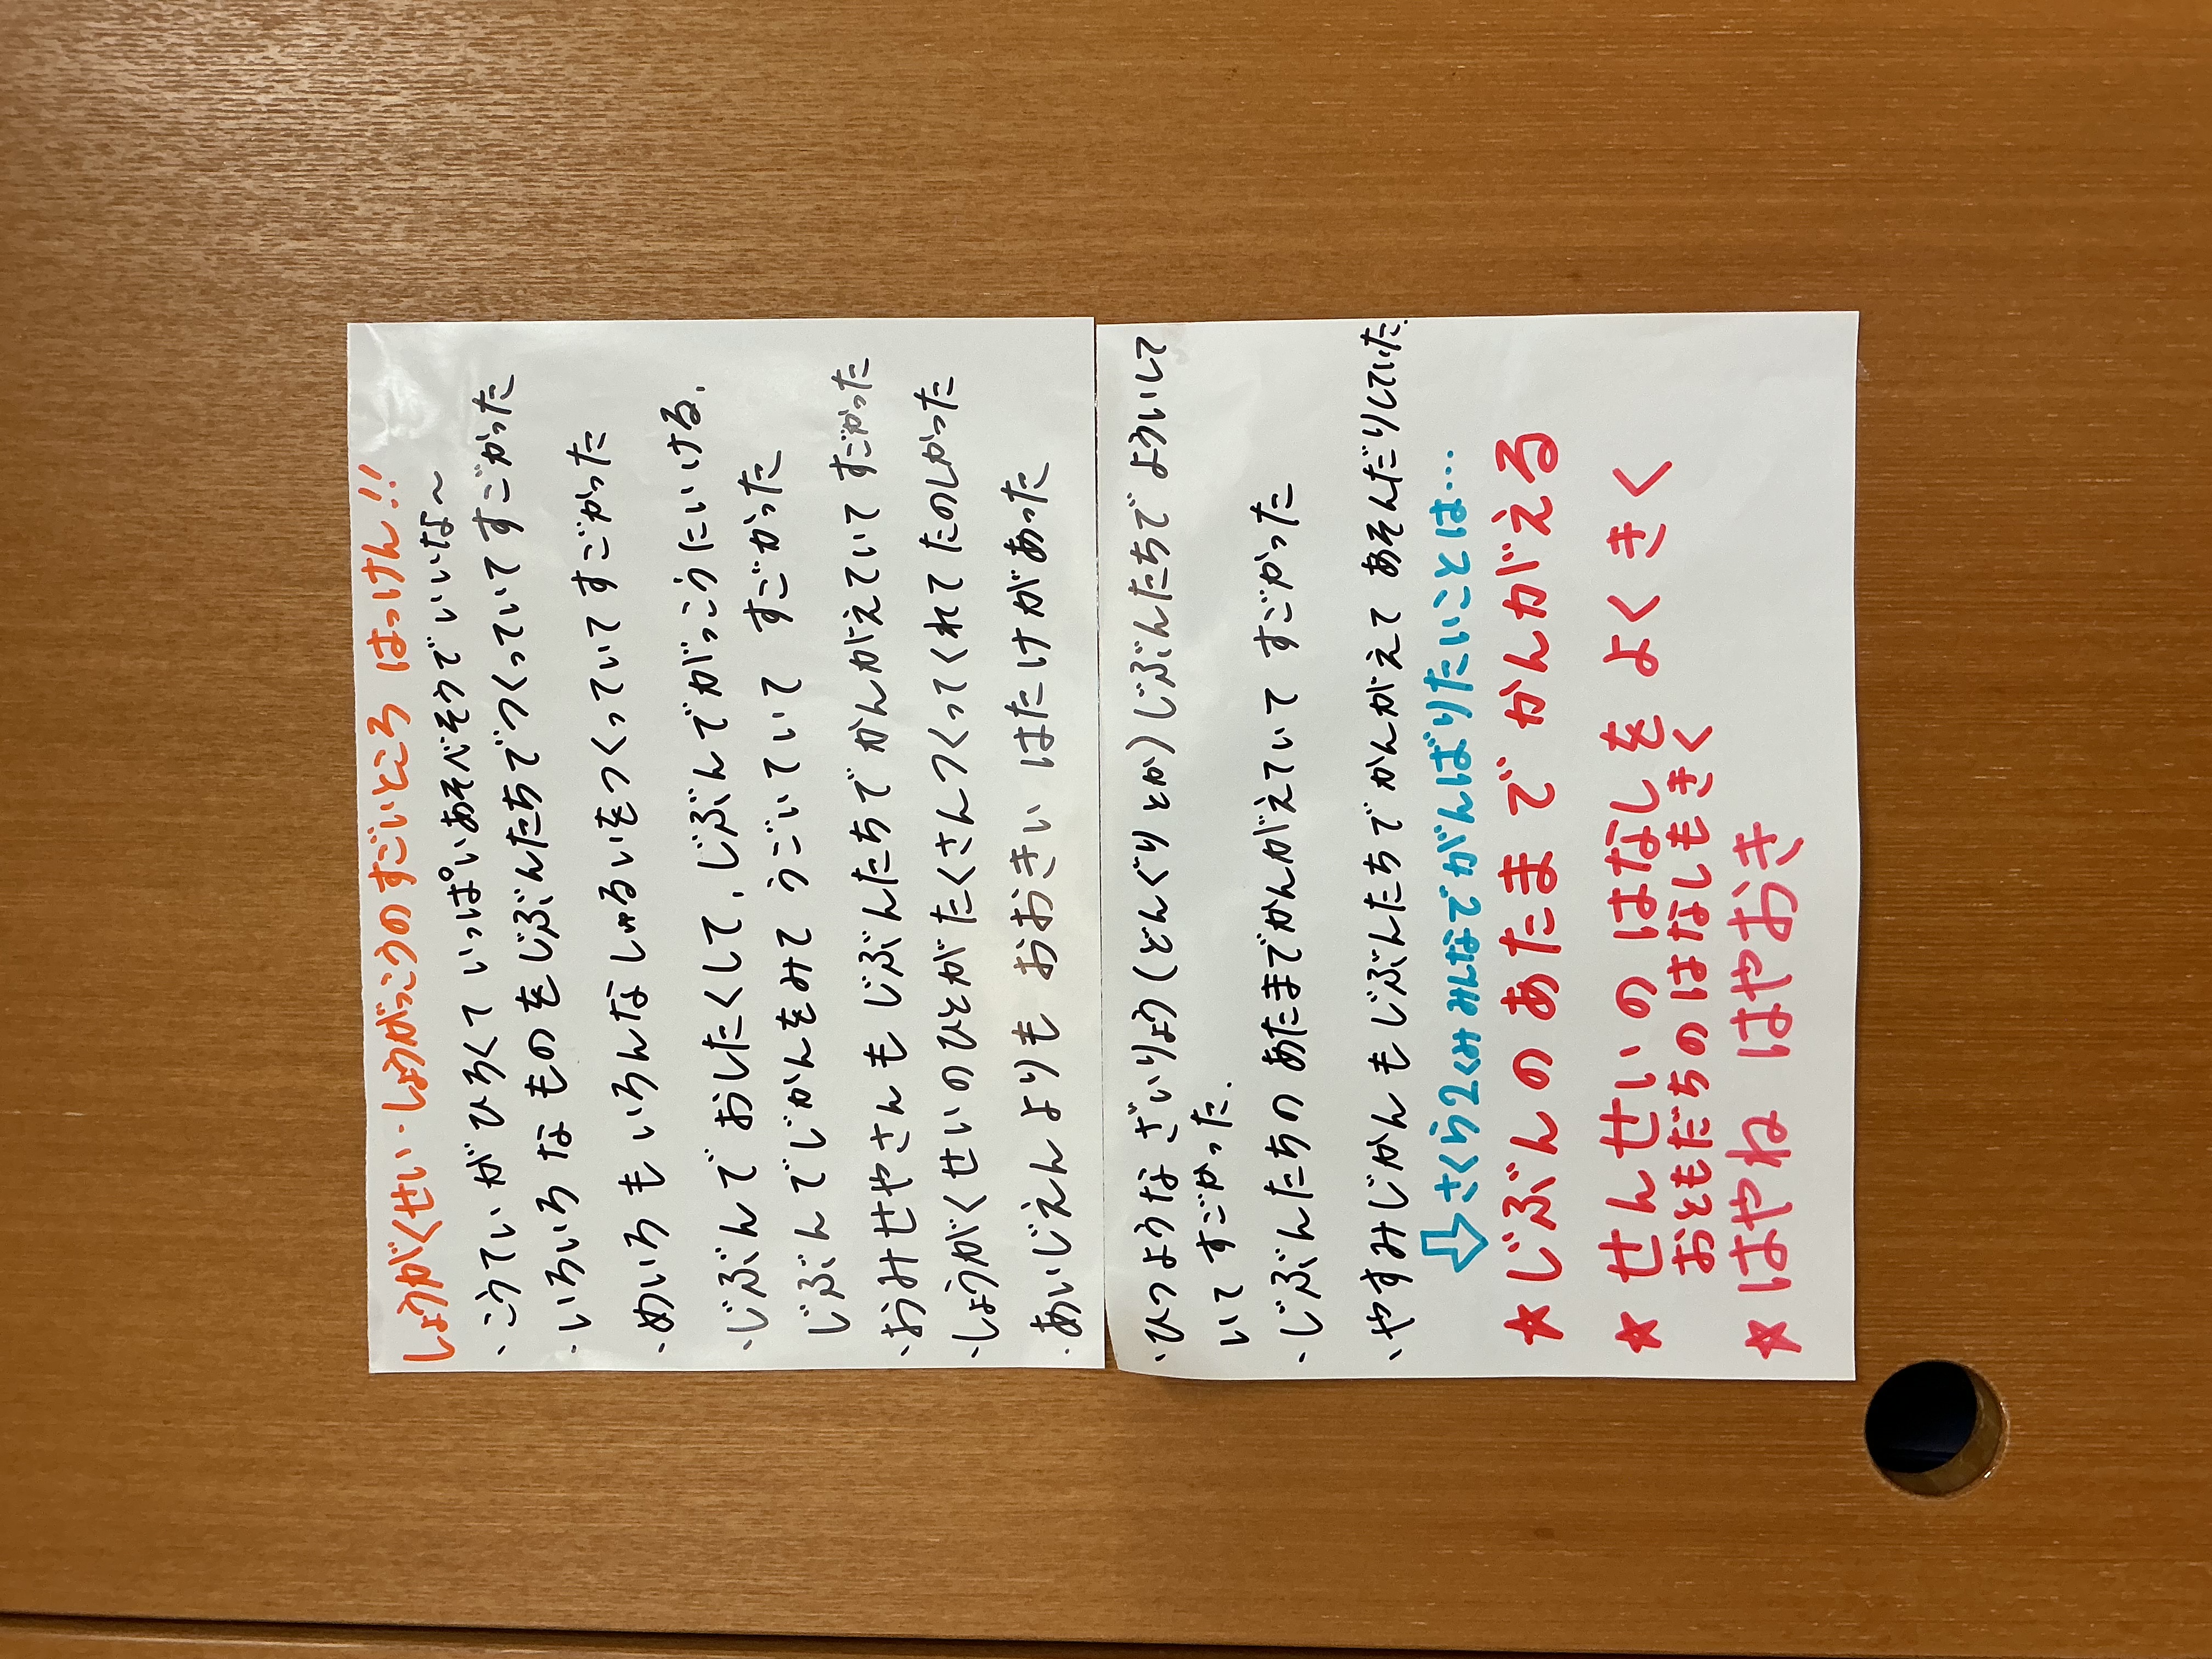 しょうがくせい・しょうがっこうのすごいところ はっけん!!
・こうていがひろくていっぱいあそべそうでいいな〜
・いろいろなものをじぶんたちでつくっていてすごかった
・めいろもいろんなしゅるいをつくっていてすごかった
・じぶんでおしたくして、じぶんでがっこうにいける。
じぶんでじかんをみてうごいていて すごかった
・おみせやさんもじぶんたちでかんがえていてすごかった
・しょうがくせいのひとがたくさんつくってくれてたのしかった
・あいじえんよりも おおきい はたけがあった
・ひつようなざいりょう(どんぐりとか)じぶんたちでよういして
いてすごかった。
・じぶんたちのあたまでかんがえていて すごかった
・やすみじかんもじぶんたちでかんがえて あそんだりしていた。
⇩さくら2くみみんなでがんばりたいことは…
★じぶんのあたまでかんがえる
★せんせいのはなしをよくきく
おともだちのはなしもきく
★はやね はやおき